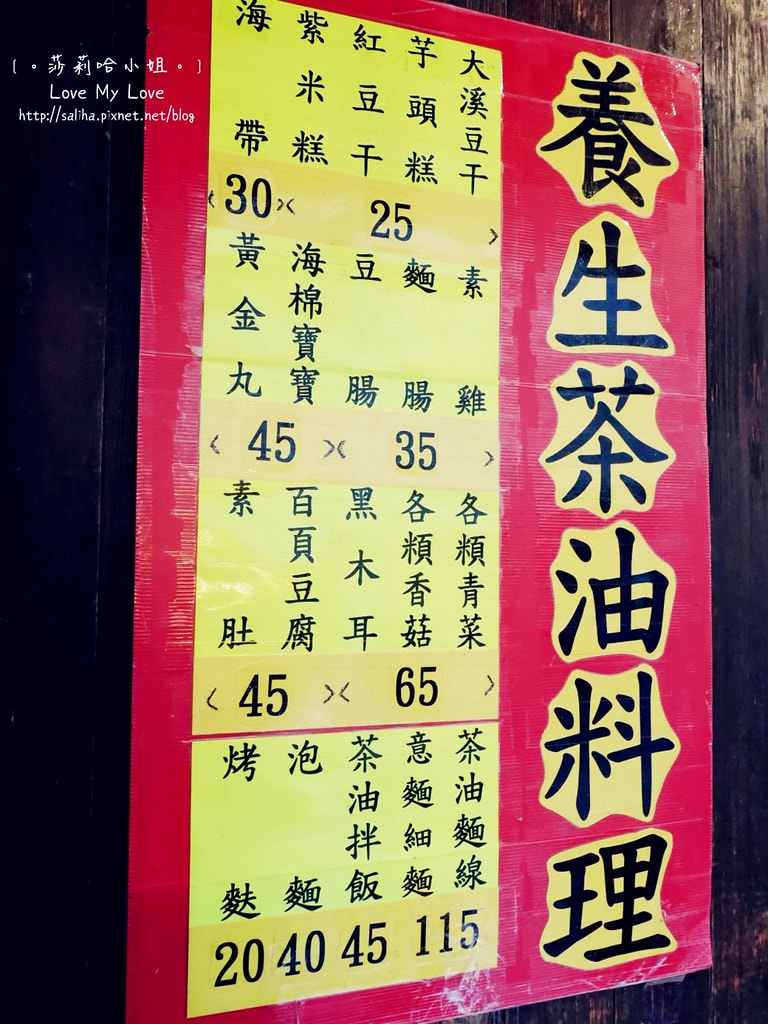 ﹝。莎莉哈小姐。﹞
Love My Love
http://saliha.pixnet.net/blog
養生茶油料理
大溪豆干
芋頭糕
紅豆干
紫米糕
海帶
25
30
素雞
麵腸
豆腸
海棉寶寶
黃金丸
35
45
各類青菜
各類香菇
黑木耳
百頁豆腐
素肚
65
45
茶油麵線
意麵細麵
茶油拌飯
泡麵
烤麩
115
45
40
20